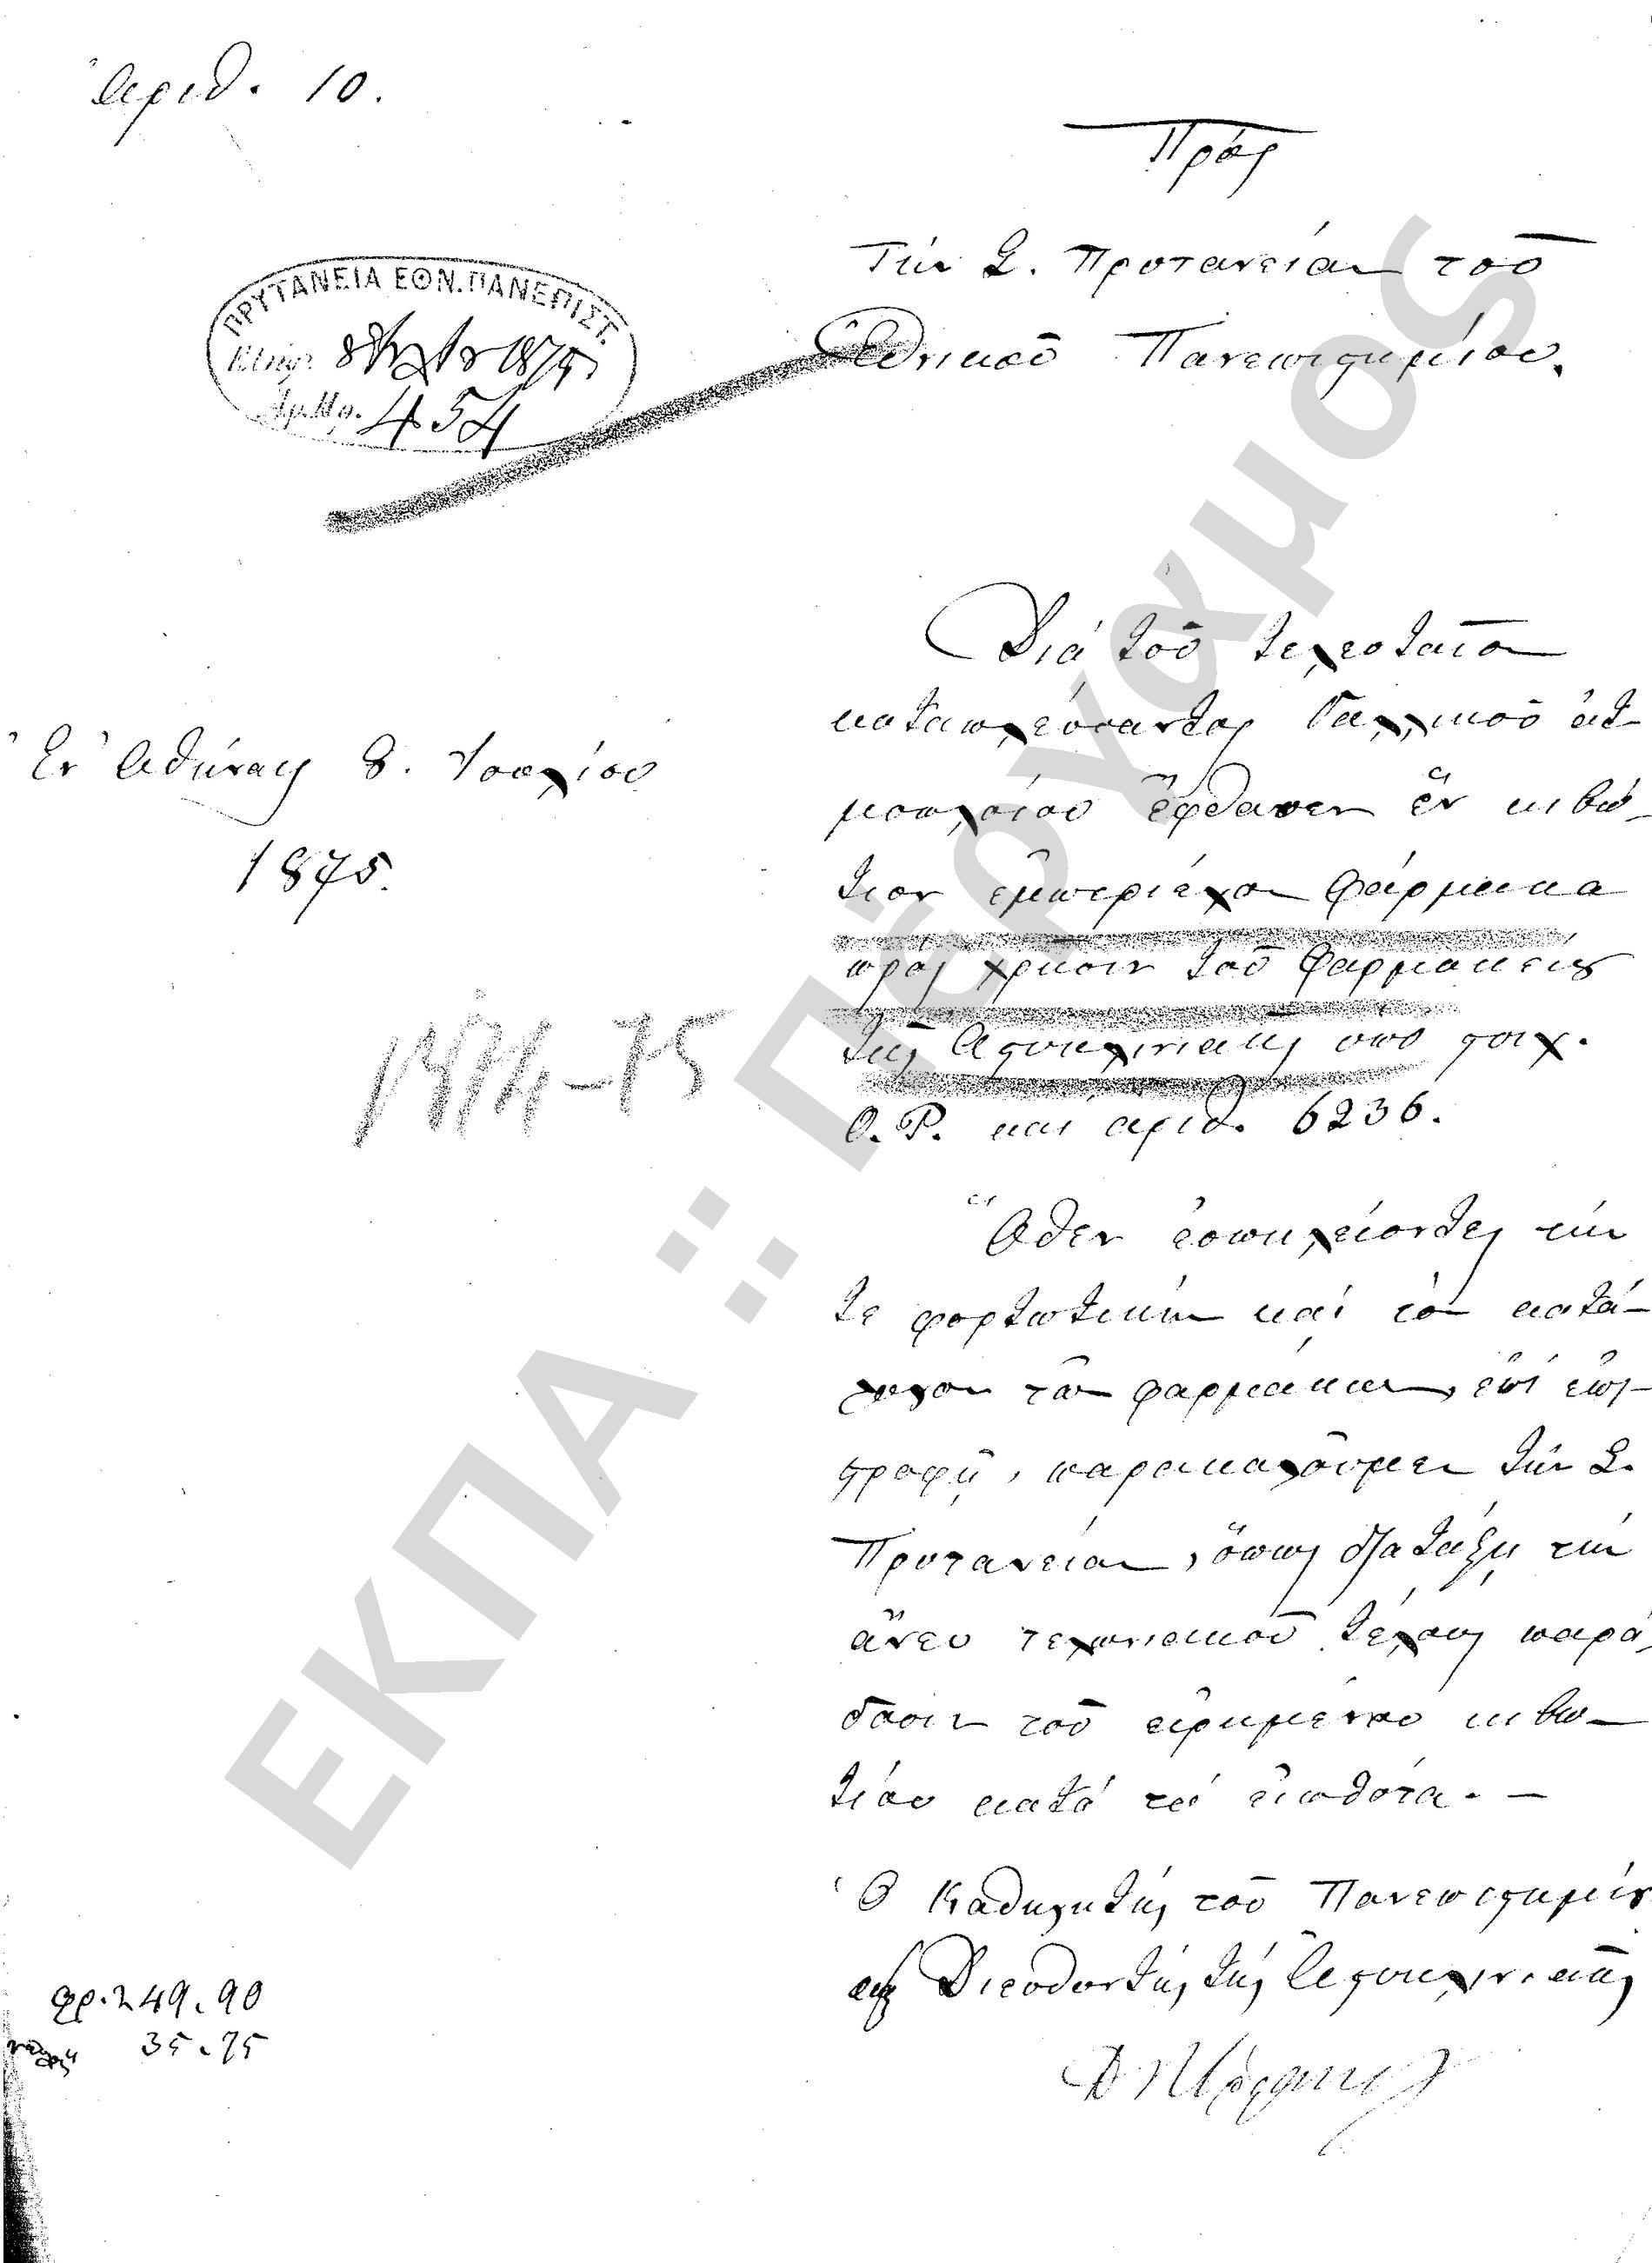 Ἀριθ. 10.
Πρὸς
Τὴν Σ. Πρυτανείαν τοῦ
Ἐθνικοῦ Πανεπιστημίου.
ΠΡΥΤΑΝΕΙΑ ΕΘΝ. ΠΑΝΕΠΙΣΤ.
1875
454
Ἐν Ἀθήναις 8. Ἰουλίου
1875.
1874-75
Διὰ τοῦ τελευταῖον
καταπλεύσαντος Γαλλικοῦ ἀτ
μοπλοίου ἔφθασεν ἓν κιβώ-
τιον ἐμπεριέχον φάρμακα
πρὸς χρῆσιν τοῦ Φαρμακείου
τῆς Ἀστυκλινικῆς ὑπὸ στοιχ.
Ο. Ρ. καὶ ἀριθ. 6236.
Ὅθεν ἐσωκλείοντες τήν
τε φορτωτικὴν καὶ τὸν κατά-
λογον τῶν φαρμάκων, ἐπὶ ἐπι-
στροφῇ, παρακαλοῦμεν τὴν Σ.
Πρυτανείαν, ὅπως διατάξῃ τὴν
ἄνευ τελωνιακοῦ τέλους παρά-
δοσιν τοῦ εἰρημένου κιβω-
τίου κατὰ τὰ εἰωθότα. -
Ὁ Καθηγητὴς τοῦ Πανεπιστημίου
Διευθυντὴς τῆς Ἀστυκλινικῆς
φρ. 249.90
35.75
ΕΚΠΑ :: Πέργαμος